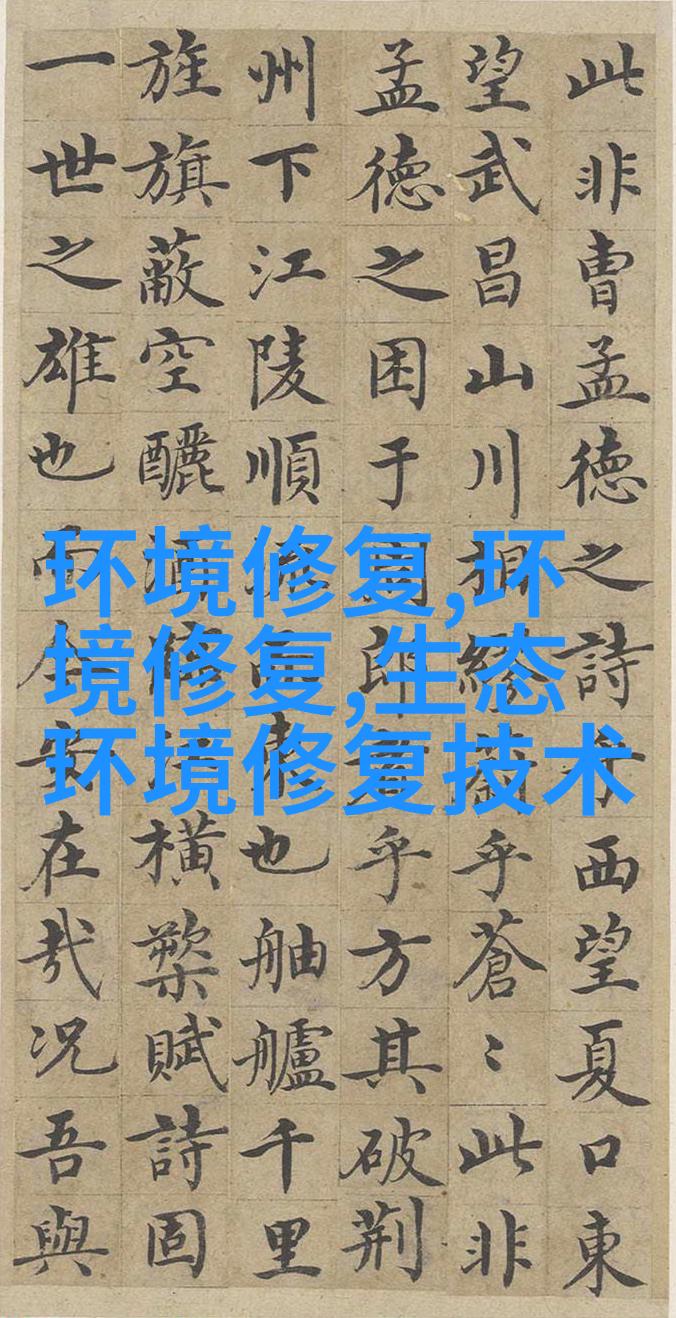 此非曹孟德之詩乎西望夏口東
望武昌山川相繆乎蒼〻此非
孟德之困于周郎者乎方其破荊
州下江陵順流而東也舳艫千里
旌旗蔽空釃酒臨江橫槊賦詩固
一世之雄也而今安在哉況吾與
环境修复,环
境修复,生态
环境修复技术